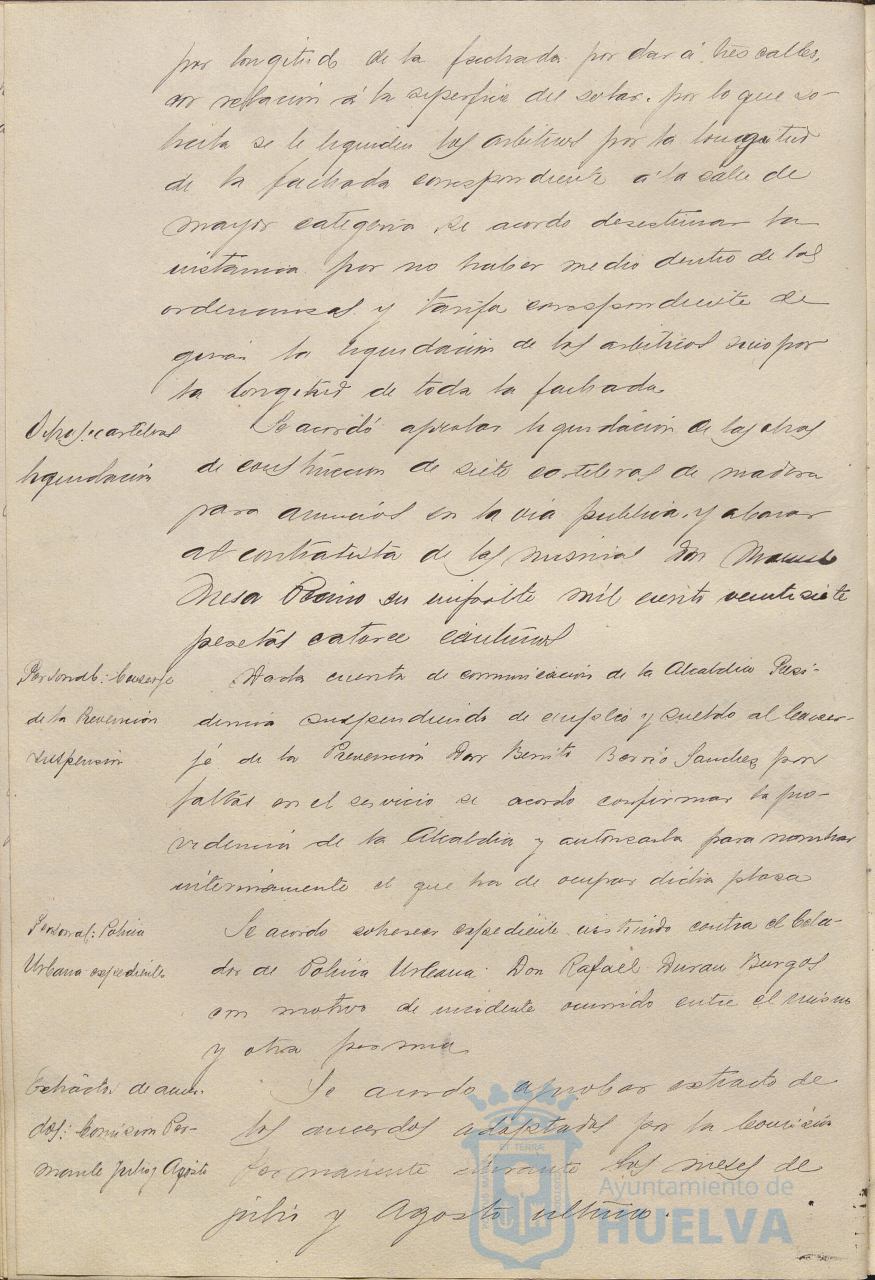 por longitud de la fachada por dar á tres calles,
con relación á la superficie del solar, por lo que so-
licita se le liquiden los arbitrios por la longitud
de la fachada correspondiente a la calle de
mayor categoria, se acordo desestimar la
instancia por no haber medio dentro de las
ordenanzas y tarifa correspondiente de
girar la liquidación de los arbitrios sino por
la longitud de toda la fachada
Obras: carteleras
liquidación
Se acordó aprobar liquidación de las obras
de construccion de siete carteleras de madera
para anuncios en la via publica, y abonar
al contratista de las mismas Don Manuel
Mesa su importe mil ciento veintisiete
pesetas catorce centimos
Personal: Conserje
de la Prevención
suspensión
Dada cuenta de comunicación de la Alcaldia Presi-
dencia suspendiendo de empleo y sueldo al Conser-
je de la Prevención Don Benito Berrio Sanchez por
faltas en el servicio se acordo confirmar la pro-
videncia de la Alcaldia y autorizarla para nombrar
interinamente el que ha de ocupar dicha plaza
Personal: Policia
Urbana expediente
Se acordo sobreseer expediente instruido contra el Cela-
dor de Policia Urbana Don Rafael Duran Burgos
con motivo de incidente ocurrido entre el mismo
y otra persona
Extracto de acuer-
dos: Comision Per-
manente Julio y Agosto
Se acordo aprobar extracto de
los acuerdos adoptados por la Comisión
Permanente durante los meses de
julio y Agosto ultimo.
Ayuntamiento de
HUELVA